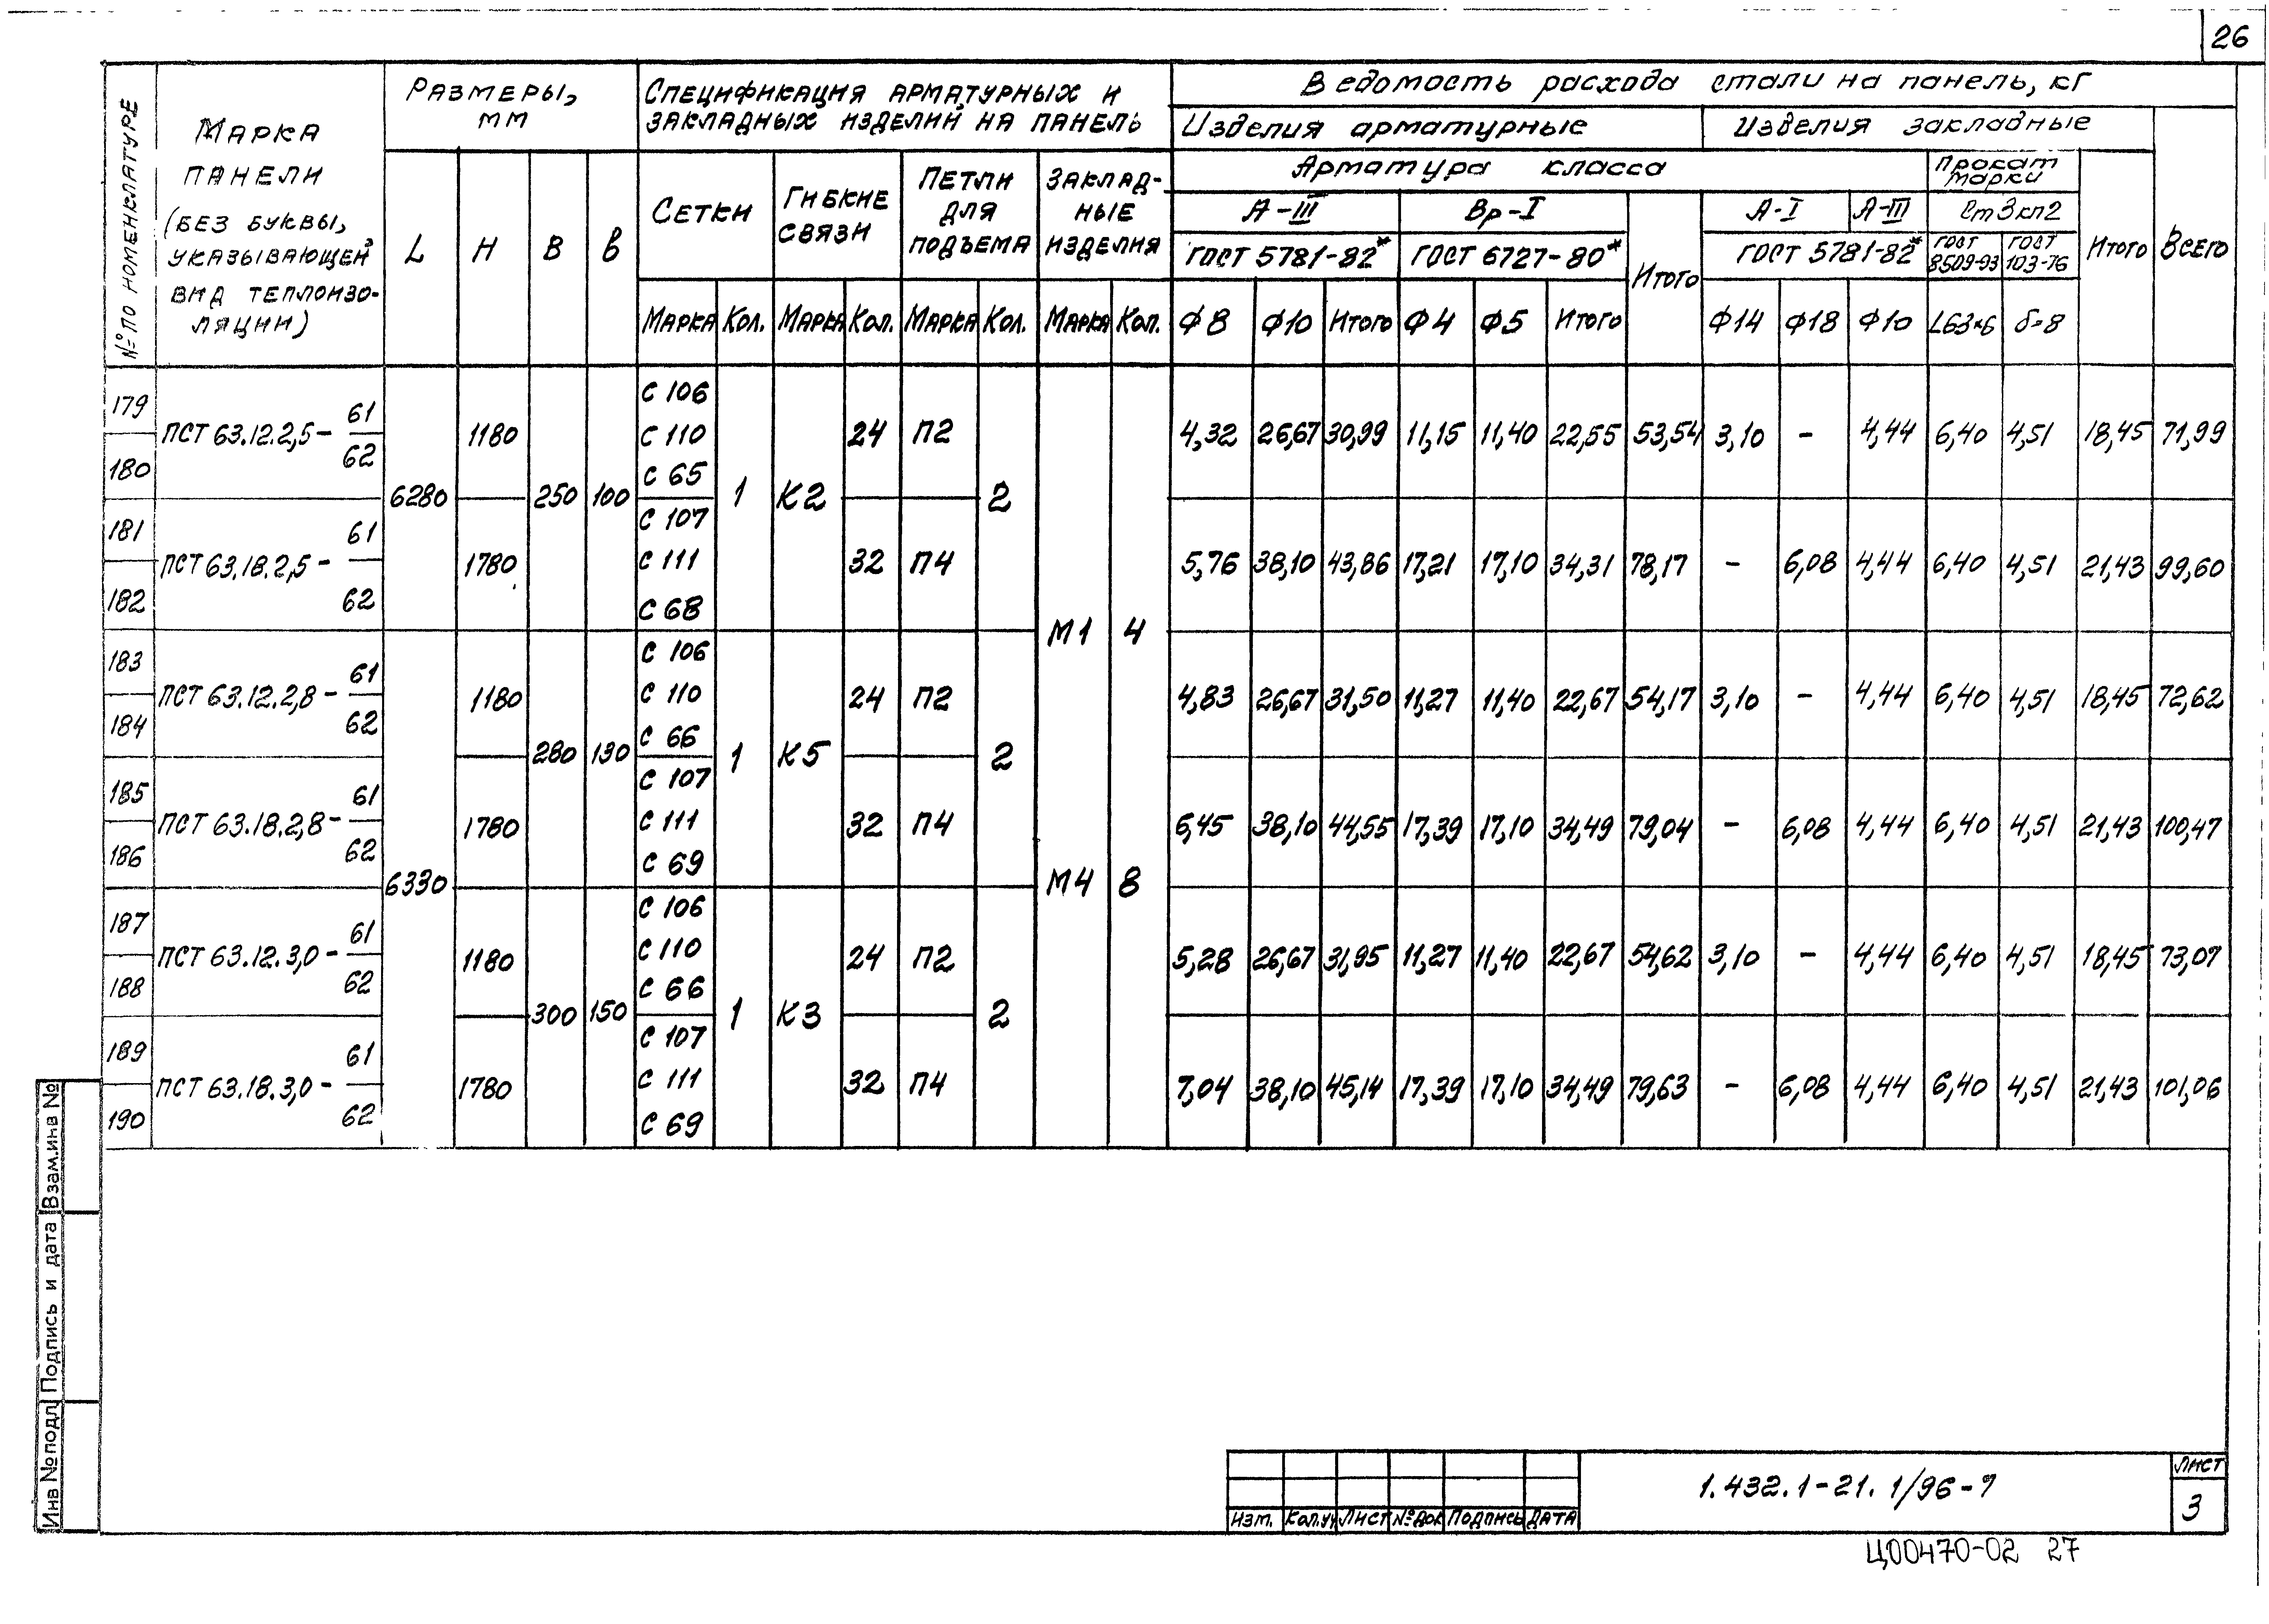 26
№ ПО НОМЕНКЛАТУРЕ
МАРКА
ПАНЕЛИ
(БЕЗ БУКВЫ,
УКАЗЫВАЮЩЕЙ
ВИД ТЕПЛОИЗО-
ЛЯЦИИ)
РАЗМЕРЫ,
ММ
СПЕЦИФИКАЦИЯ АРМАТУРНЫХ И
ЗАКЛАДНЫХ ИЗДЕЛИЙ НА ПАНЕЛЬ
Ведомость расхода стали на панель, кг
Изделия арматурные Изделия закладные
L H B b
СЕТКИ
ГИБКИЕ
СВЯЗИ
ПЕТЛИ
ДЛЯ
ПОДЪЕМА
ЗАКЛАД-
НЫЕ
ИЗДЕЛИЯ
Арматура класса
Прокат
марки
А-III Вр-I Итого А-I А-III Ст3кп2 Итого Всего
ГОСТ 5781-82* ГОСТ 6727-80* ГОСТ 5781-82* ГОСТ 8509-93 ГОСТ 103-76
Марка Кол. Марка Кол. Марка Кол. Марка Кол. Ф8 Ф10 Итого Ф4 Ф5 Итого Ф14 Ф18 Ф10 L63×6 δ=8
179 180 ПСТ 63.12.2,5- 61 62 6280 1180 250 100 С 106 С 110 С 65 1 К2 24 П2 2 М1 4 4,32 26,67 30,99 11,15 11,40 22,55 53,54 3,10 - 4,44 6,40 4,51 18,45 71,99
181 182 ПСТ 63.18.2,5- 61 62 1780 С 107 С 111 С 68 32 П4 5,76 38,10 43,86 17,21 17,10 34,31 78,17 - 6,08 4,44 6,40 4,51 21,43 99,60
183 184 ПСТ 63.12.2,8- 61 62 6330 1180 280 130 С 106 С 110 С 66 1 К5 24 П2 2 М4 8 4,83 26,67 31,50 11,27 11,40 22,67 54,17 3,10 - 4,44 6,40 4,51 18,45 72,62
185 186 ПСТ 63.18.2,8- 61 62 1780 С 107 С 111 С 69 32 П4 6,45 38,10 44,55 17,39 17,10 34,49 79,04 - 6,08 4,44 6,40 4,51 21,43 100,47
187 188 ПСТ 63.12.3,0- 61 62 1180 300 150 С 106 С 110 С 66 1 К3 24 П2 2 5,28 26,67 31,95 11,27 11,40 22,67 54,62 3,10 - 4,44 6,40 4,51 18,45 73,07
189 190 ПСТ 63.18.3,0- 61 62 1780 С 107 С 111 С 69 32 П4 7,04 38,10 45,14 17,39 17,10 34,49 79,63 - 6,08 4,44 6,40 4,51 21,43 101,06
Инв № подл Подпись и дата Взам.инв №
Изм. Кол.уч Лист № док Подпись Дата
1.432.1-21.1/96-7
ЛИСТ
3
Ц00470-02 27